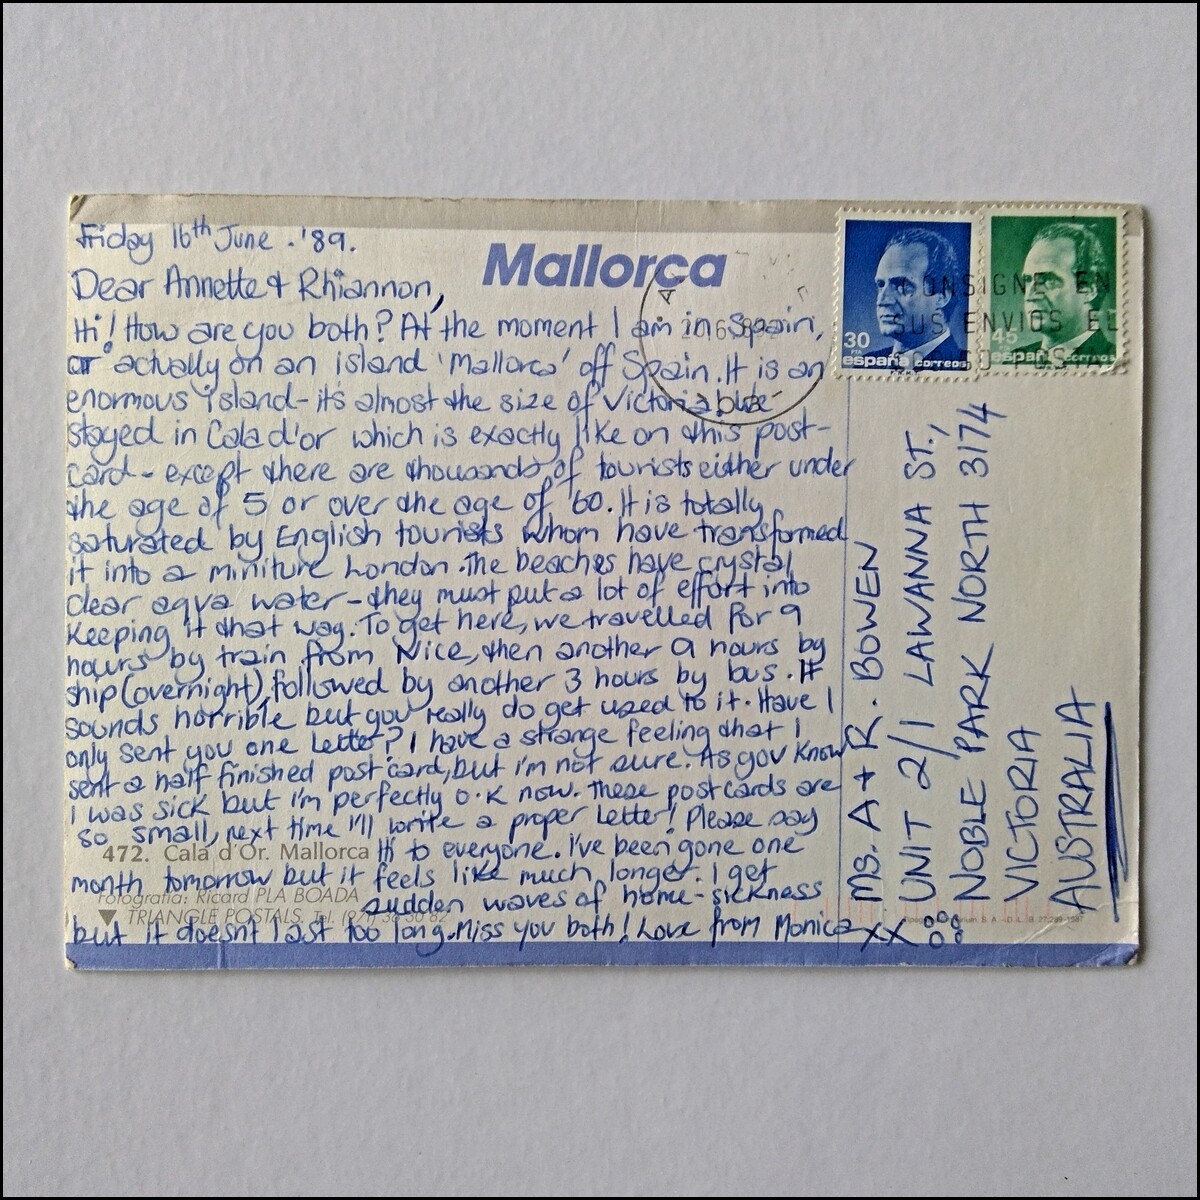 Friday 16th June . '89.
Mallorca
Dear Annette & Rhiannon,
Hi! How are you both? At the moment I am in Spain,
or actually on an island 'Mallorca' off Spain. It is an
enormous island - it's almost the size of Victoria, we
stayed in Cala d'or which is exactly like on this post-
card - except there are thousands of tourists either under
the age of 5 or over the age of 60. It is totally
saturated by English tourists whom have transformed
it into a miniture London. The beaches have crystal
clear aqva water - they must put a lot of effort into
keeping it that way. To get here, we travelled for 9
hours by train from Nice, then another 9 hours by
ship (overnight), followed by another 3 hours by bus. It
sounds horrible but you really do get used to it. Have I
only sent you one letter? I have a strange feeling that I
sent a half finished postcard, but i'm not sure. As you know
I was sick but I'm perfectly O.K now. These postcards are
so small, next time I'll write a proper letter! Please say
472. Cala d'Or. Mallorca
Hi to everyone. I've been gone one
month tomorrow but it feels like much longer. I get
Fotografia: Ricard PLA BOADA
sudden waves of home-sickness
TRIANGLE POSTALS. Tel. (971) 36 30 82
but it doesn't last too long. Miss you both! Love from Monica xx
30
PTA
españa correos
45
españa correos
CONSIGNE EN
SUS ENVIOS EL
Ms. A + R. BOWEN
UNIT 2/1 LAWANNA ST.,
NOBLE PARK NORTH 3174
VICTORIA
AUSTRALIA